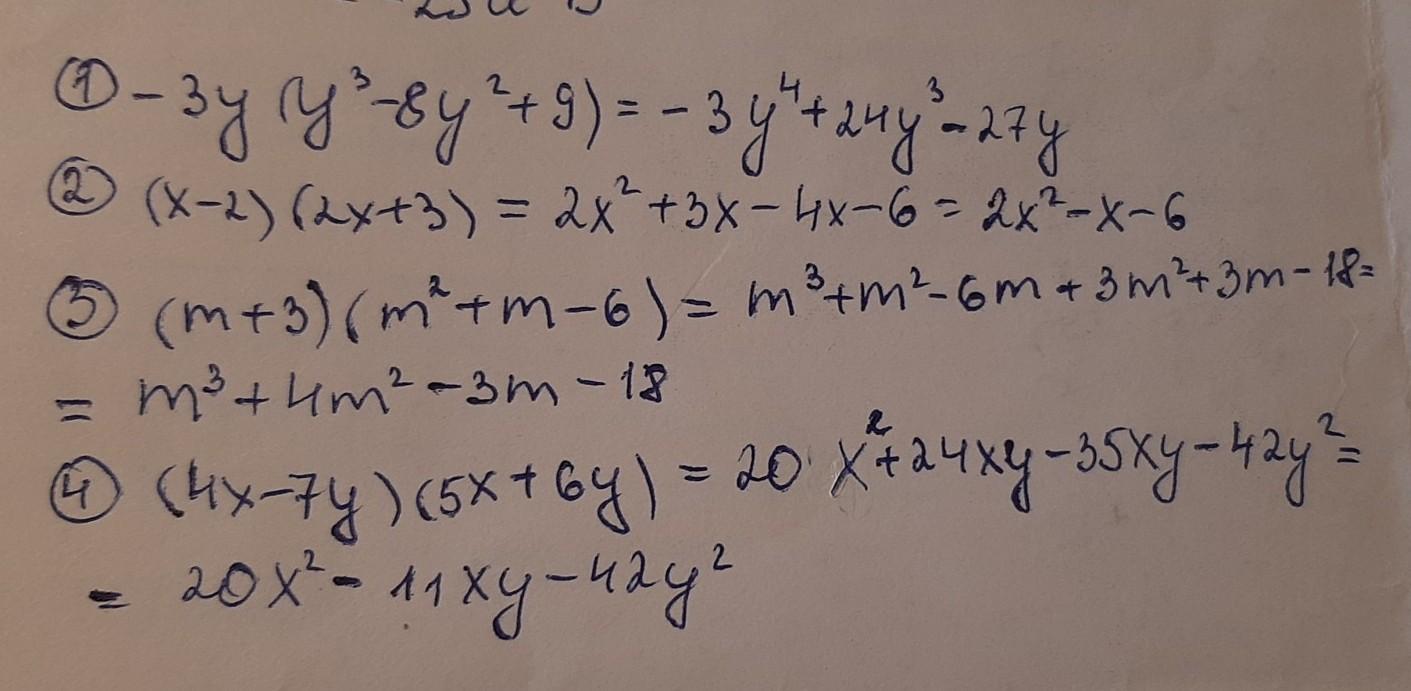 ① -3y (y³-8y²+9) = -3y⁴+24y³-27y
② (x-2)(2x+3) = 2x²+3x-4x-6 = 2x²-x-6
③ (m+3)(m²+m-6) = m³+m²-6m+3m²+3m-18=
= m³+4m²-3m-18
④ (4x-7y)(5x+6y) = 20x²+24xy-35xy-42y²=
= 20x²-11xy-42y²